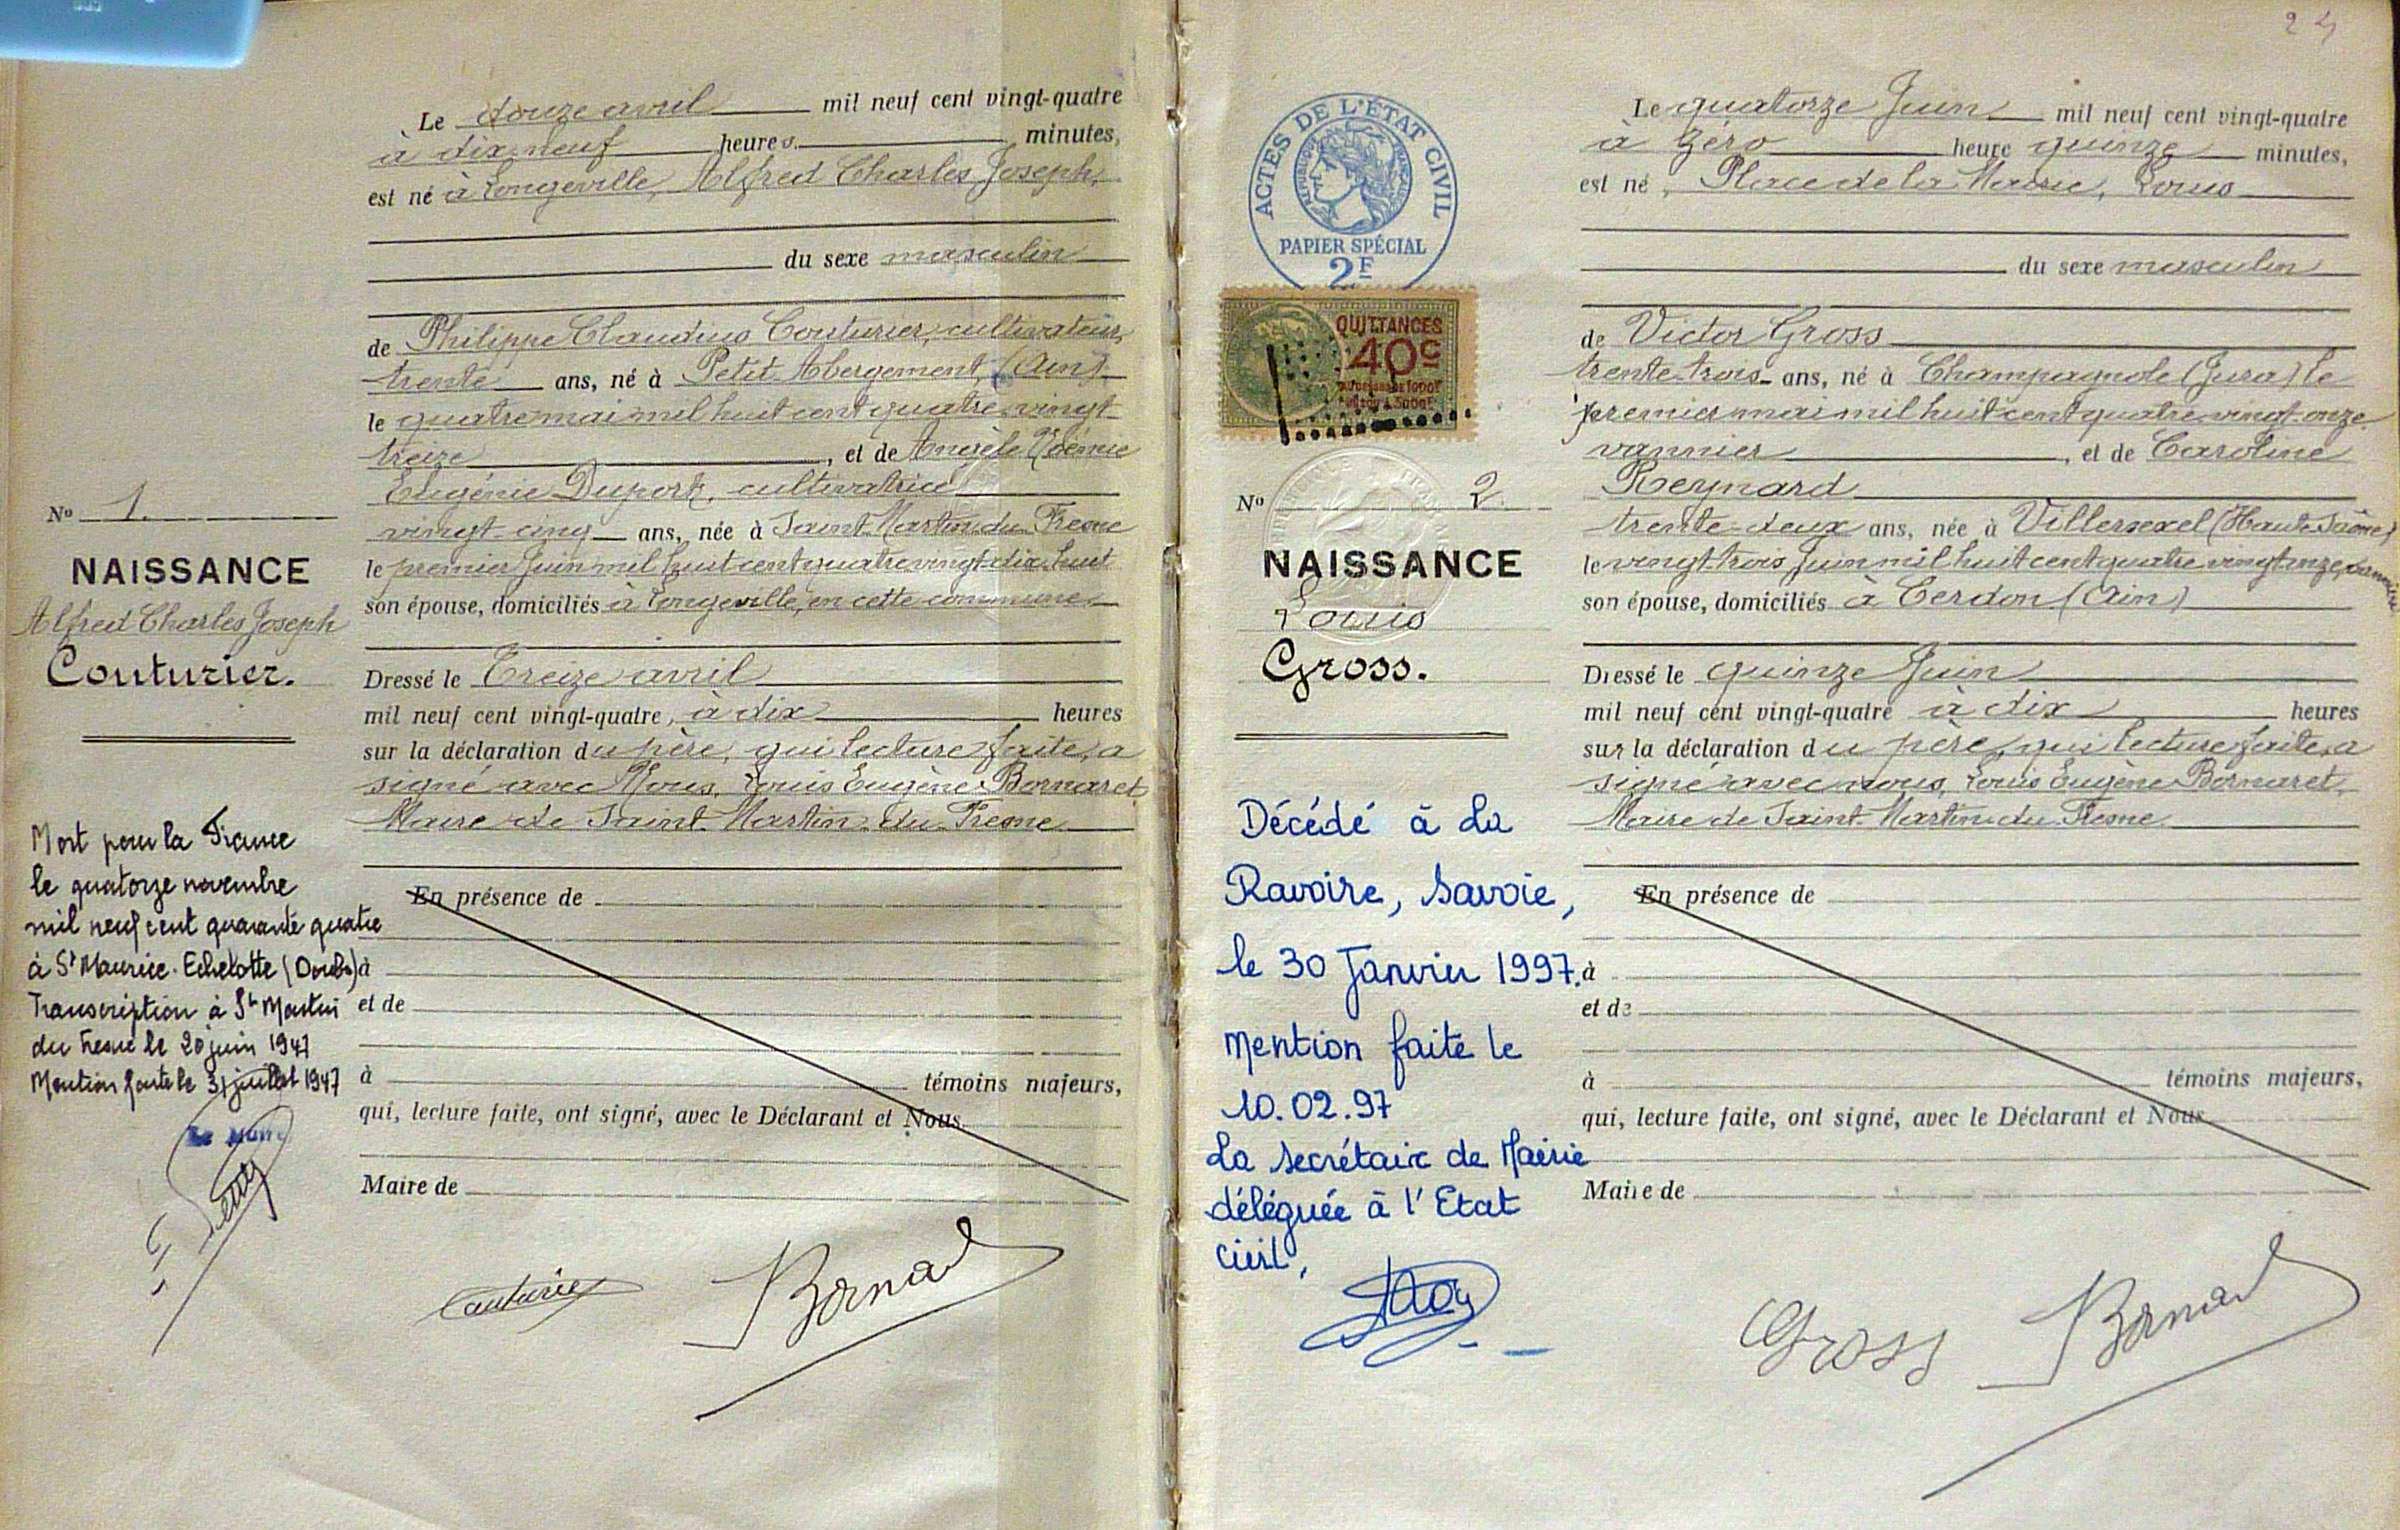 Le douze avril mil neuf cent vingt-quatre
à dix neuf heures minutes,
est né à Longeville, Alfred Charles Joseph,
du sexe masculin
de Philippe Claudius Couturier, cultivateur,
trente ans, né à Petit Abergement, (Ain)
le quatre mai mil huit cent quatre vingt
treize, et de Angèle Noémie
Eugénie Duport, cultivatrice
vingt-cinq ans, née à Saint Martin du Fresne
le premier Juin mil huit cent quatre vingt dix huit
son épouse, domiciliés à Longeville, en cette commune
Dressé le Treize avril
mil neuf cent vingt-quatre, à dix heures
sur la déclaration du père, qui lecture faite, a
signé avec Nous, Louis Eugène Bornaret
Maire de Saint-Martin-du-Fresne
En présence de
à
et de
à témoins majeurs,
qui, lecture faite, ont signé, avec le Déclarant et Nous
Maire de
Couturier
Bornaret
No 1.
NAISSANCE
Alfred Charles Joseph
Couturier.
Mort pour la France
le quatorze novembre
mil neuf cent quarante quatre
à St Maurice-Echelotte (Doubs)
Transcription à St Martin
du Fresne le 20 juin 1947
Mention faite le 31 juillet 1947
Le Maire
24
ACTES DE L'ÉTAT CIVIL
RÉPUBLIQUE FRANÇAISE
PAPIER SPÉCIAL
2F
QUITTANCES
40c
No 2
NAISSANCE
Louis
Gross.
Décédé à La
Ravoire, Savoie,
le 30 Janvier 1997.
Mention faite le
10.02.97
La secrétaire de Mairie
déléguée à l'Etat
civil,
Le quatorze Juin mil neuf cent vingt-quatre
à Zéro heure quinze minutes,
est né, Place de la Mairie, Louis
du sexe masculin
de Victor Gross
trente trois ans, né à Champagnole (Jura) le
premier mai mil huit cent quatre vingt onze
vannier, et de Caroline
Reynard
trente-deux ans, née à Villersexel (Haute Saône)
le vingt-trois Juin mil huit cent quatre vingt onze, vannière
son épouse, domiciliés à Cerdon (Ain)
Dressé le quinze Juin
mil neuf cent vingt-quatre à dix heures
sur la déclaration du père, qui lecture faite, a
signé avec nous, Louis Eugène Bornaret,
Maire de Saint-Martin du Fresne
En présence de
à
et de
à témoins majeurs,
qui, lecture faite, ont signé, avec le Déclarant et Nous
Maire de
Gross
Bornaret